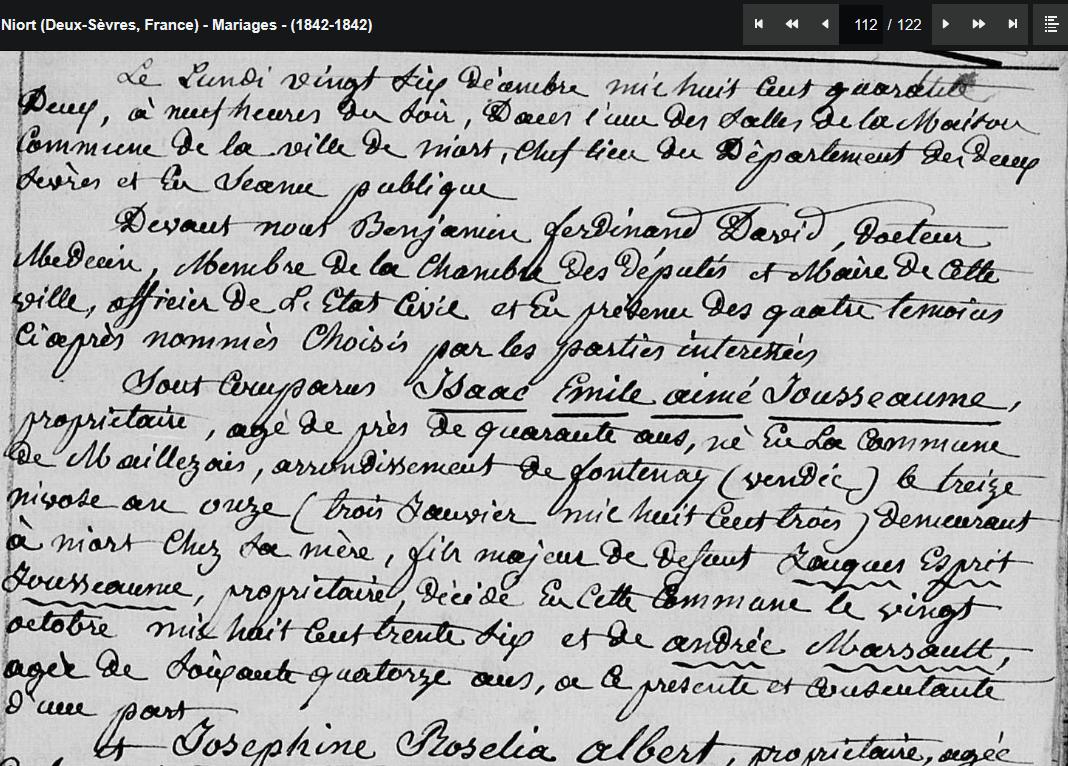 Niort (Deux-Sèvres, France) - Mariages - (1842-1842)
112 / 122
Le Lundi vingt six décembre mil huit cent quarante
Deux, à neuf heures du soir, Dans l'une des Salles de la Maison
Commune de la ville de niort, Chef lieu du Département des deux
Sèvres et En Seance publique
Devant nous Benjamin ferdinand David, Docteur
Medecin, Membre de la Chambre des Députés et Maire de Cette
ville, officier de L'Etat Civil et En présence des quatre temoins
Ciaprès nommés Choisis par les parties interessées
Sont Comparus Isaac Emile aimé Jousseaume,
propriétaire, agé de près de quarante ans, né En La Commune
de Maillezais, arrondissement de fontenay (vendée) le treize
nivose an onze (trois Janvier mil huit Cent trois) demeurant
à niort Chez Sa mère, fils majeur de defunt Jacques Esprit
Jousseaume, propriétaire, décédé En Cette Commune le vingt
octobre mil huit Cent trente six et de andrée Marsault,
agée de Soixante quatorze ans, a Ce présente et Consentante
d'une part
et Josephine Roselia albert, propriétaire, agée